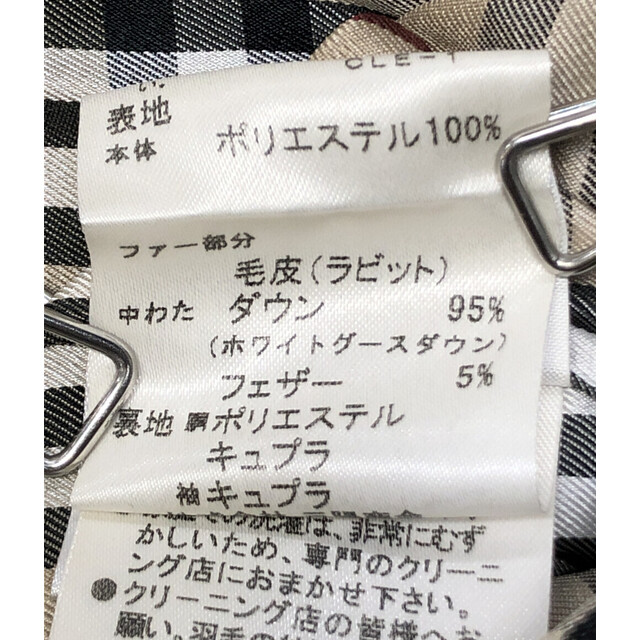 CLE-1
表地
本体 ポリエステル100%
ファー部分
毛皮(ラビット)
中わた ダウン 95%
(ホワイトグースダウン)
フェザー 5%
裏地 胴ポリエステル
キュプラ
袖キュプラ
は、非常にむず
かしいため、専門のクリーニ
ング店におまかせ下さい。
●クリーニング店の皆様へお
願い。羽毛の